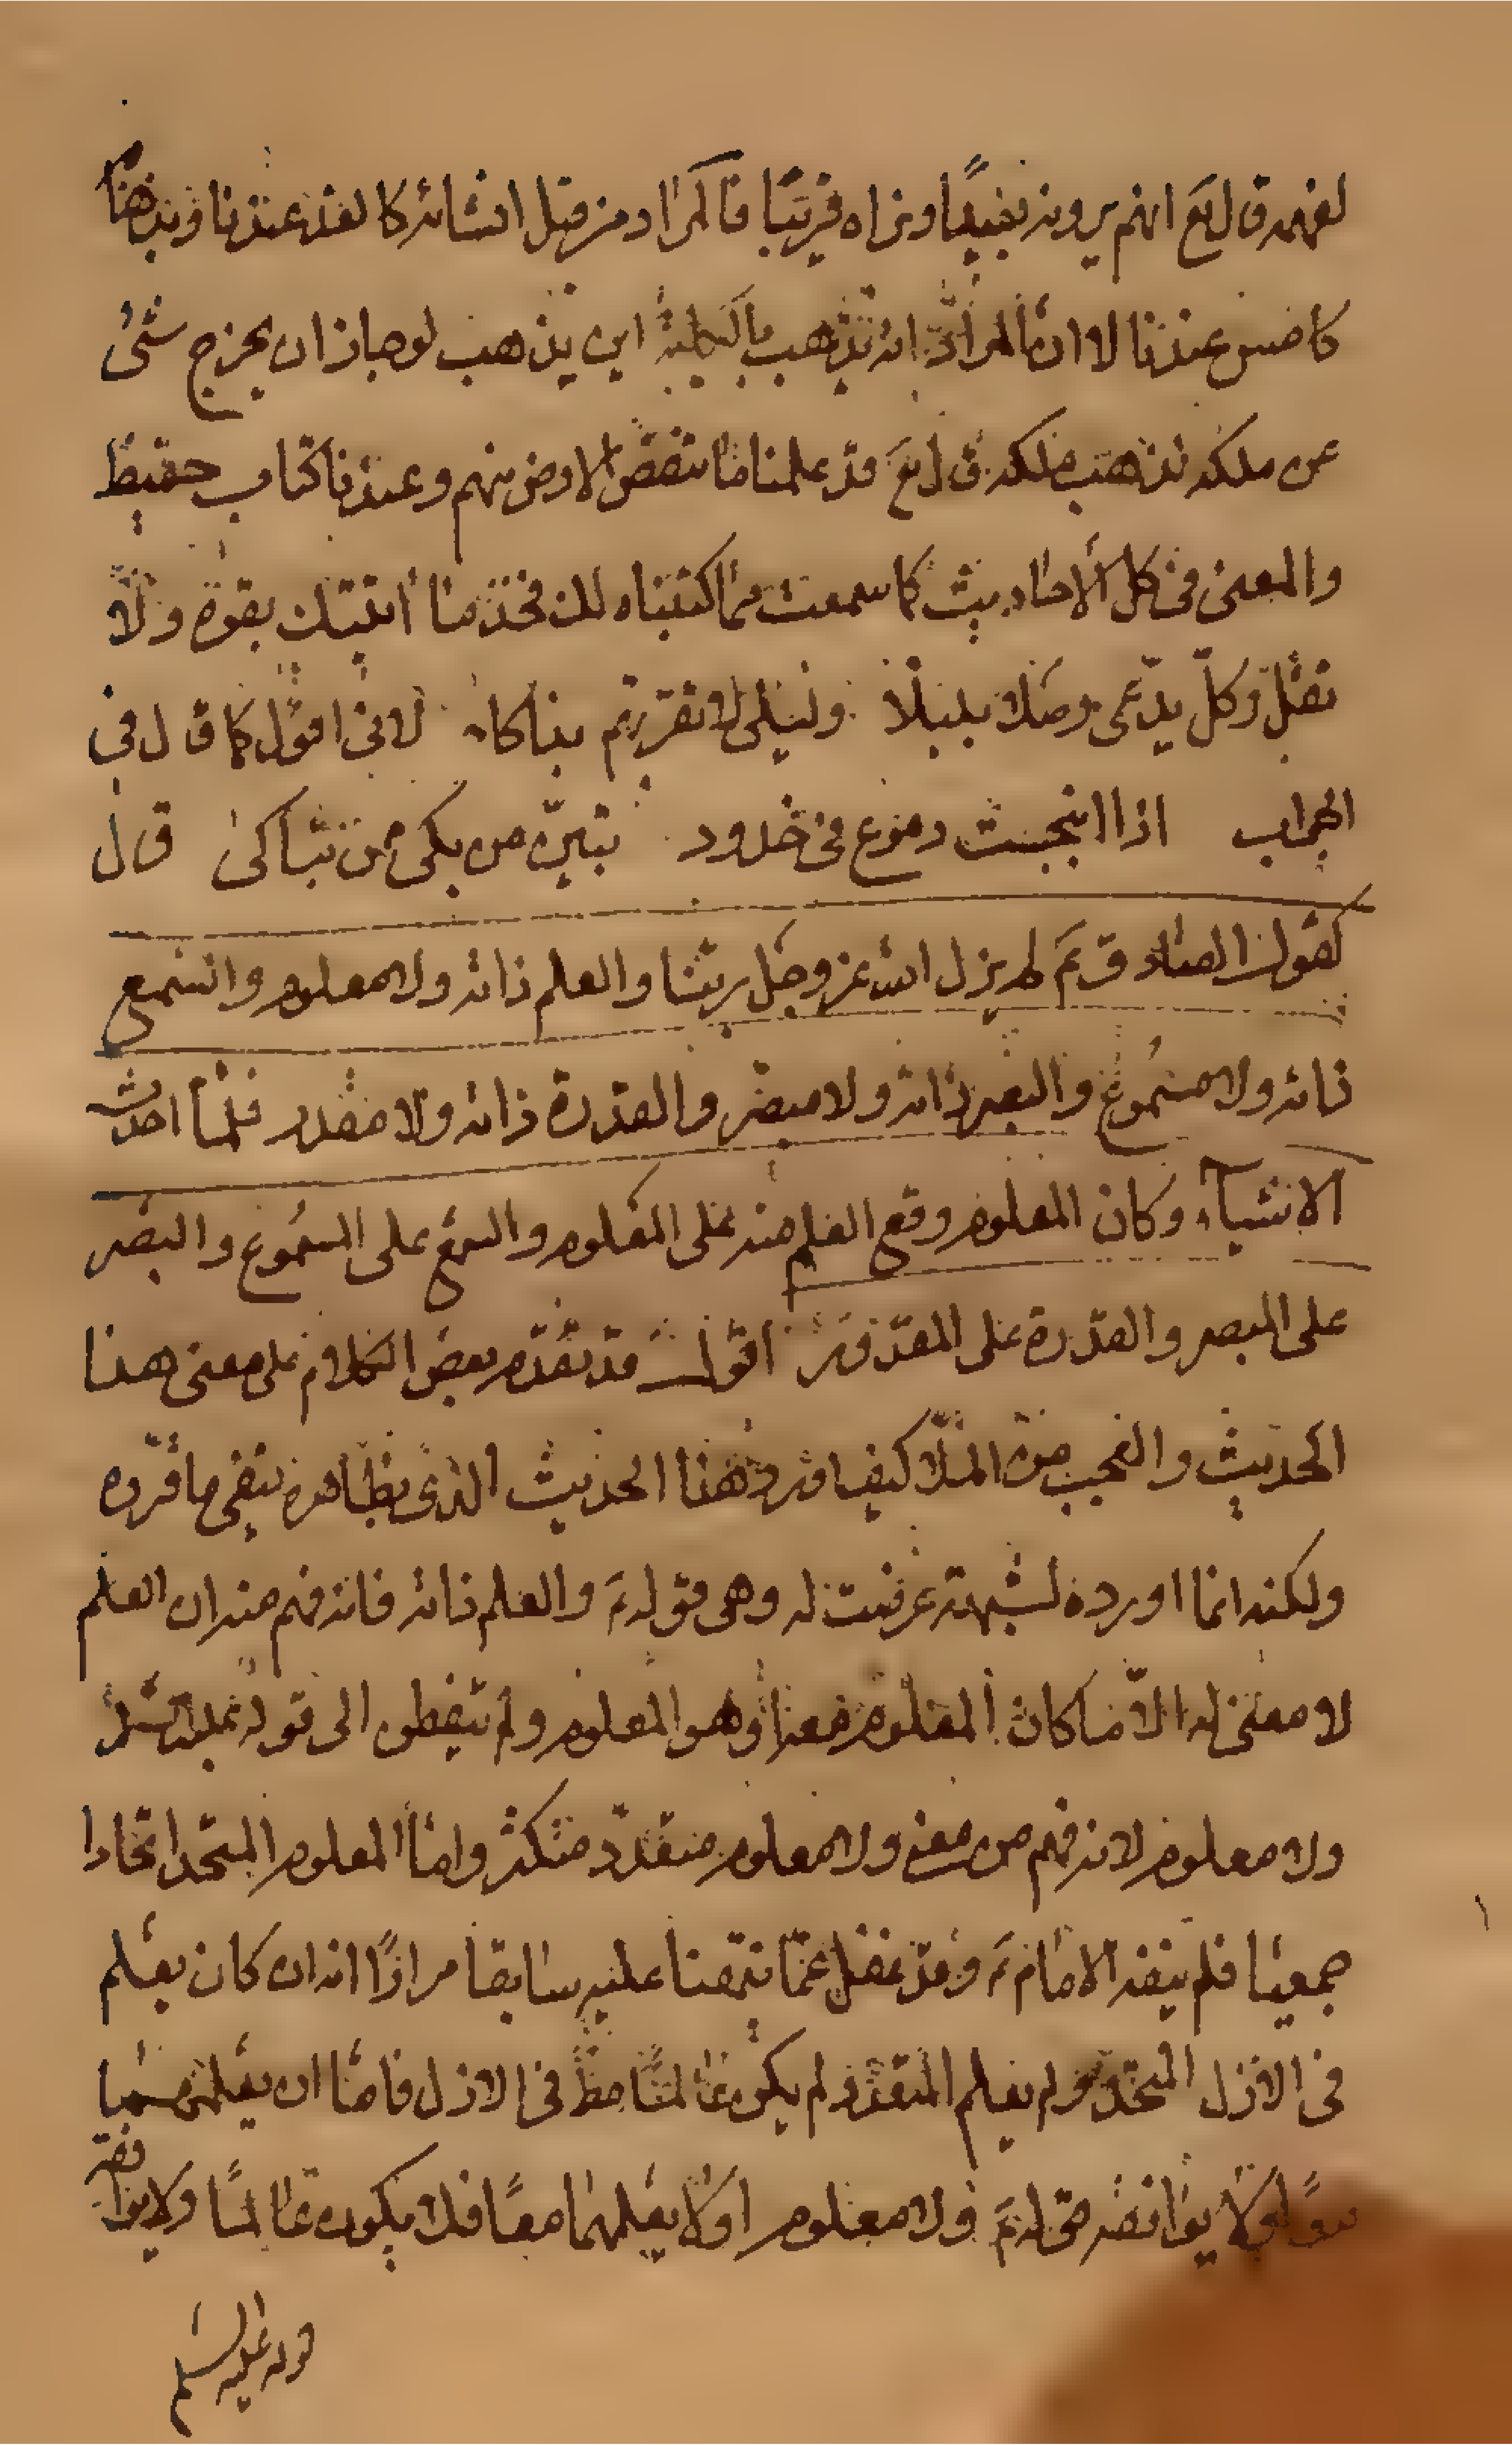 لفهمه قال تع انهم يرونه بعيدًا ونراه قريبًا فالمراد من قبل انشائه كالغد عندنا وبذهنا
كامس عندنا لا ان المراد انه تذهب بالكلية اين يذهب لو جاز ان يخرج شئ
عن ملكه لذهب ملكه قال تع قد علمنا ما تنقص الارض منهم وعندنا كتاب حفيظ
والمعنى فى كل الاحاديث كما سمعت مما كتبناه لك فخذ ما اتيتك بقوة ولا
تقبل وكلّ يدّعى وصلا بليلا وليلى لا تقر لهم بذاكا لانى اقول كما قال فى
الجواب اذا انبجست دموع فى خدود تبيّن من بكى ممن تباكى قال
كقول الصادق ع لم يزل الله عز وجل ربنا والعلم ذاته ولا معلوم والسمع
ذاته ولا مسموع والبصر ذاته ولا مبصر والقدرة ذاته ولا مقدور فلما احدث
الاشياء وكان المعلوم وقع العلم منه على المعلوم والسمع على المسموع والبصر
على المبصر والقدرة على المقدور اقول قد تقدّم بعض الكلام على معنى هذا
الحديث والعجب من الملّا كيف اورد هذا الحديث الذى بظاهره ينفى ما قرّره
ولكنه انما اورده لشبهة عرضت له وهى قوله ع والعلم ذاته فانه فهم منه ان العلم
لا معنى له الّا ما كان المعلوم معه وهو المعلوم ولم يتفطن الى قوله عليه السلام
ولا معلوم لانه فهم من معنى ولا معلوم متعدّد متكثر واما المعلوم المتحد اتحادا
جمعيا فلم ينفه الامام ع وقد غفل عمّا نبّهنا عليه سابقا مرارًا انه ان كان يعلم
فى الازل المتحد ولم يعلم المتعدد لم يكن عالما مط فى الازل فاما ان يعلمهما
معًا ولا يوافق قوله ع ولا معلوم او لا يعلمهما معًا فلا يكون عالمًا ولا يوافق
قوله عليه السلم